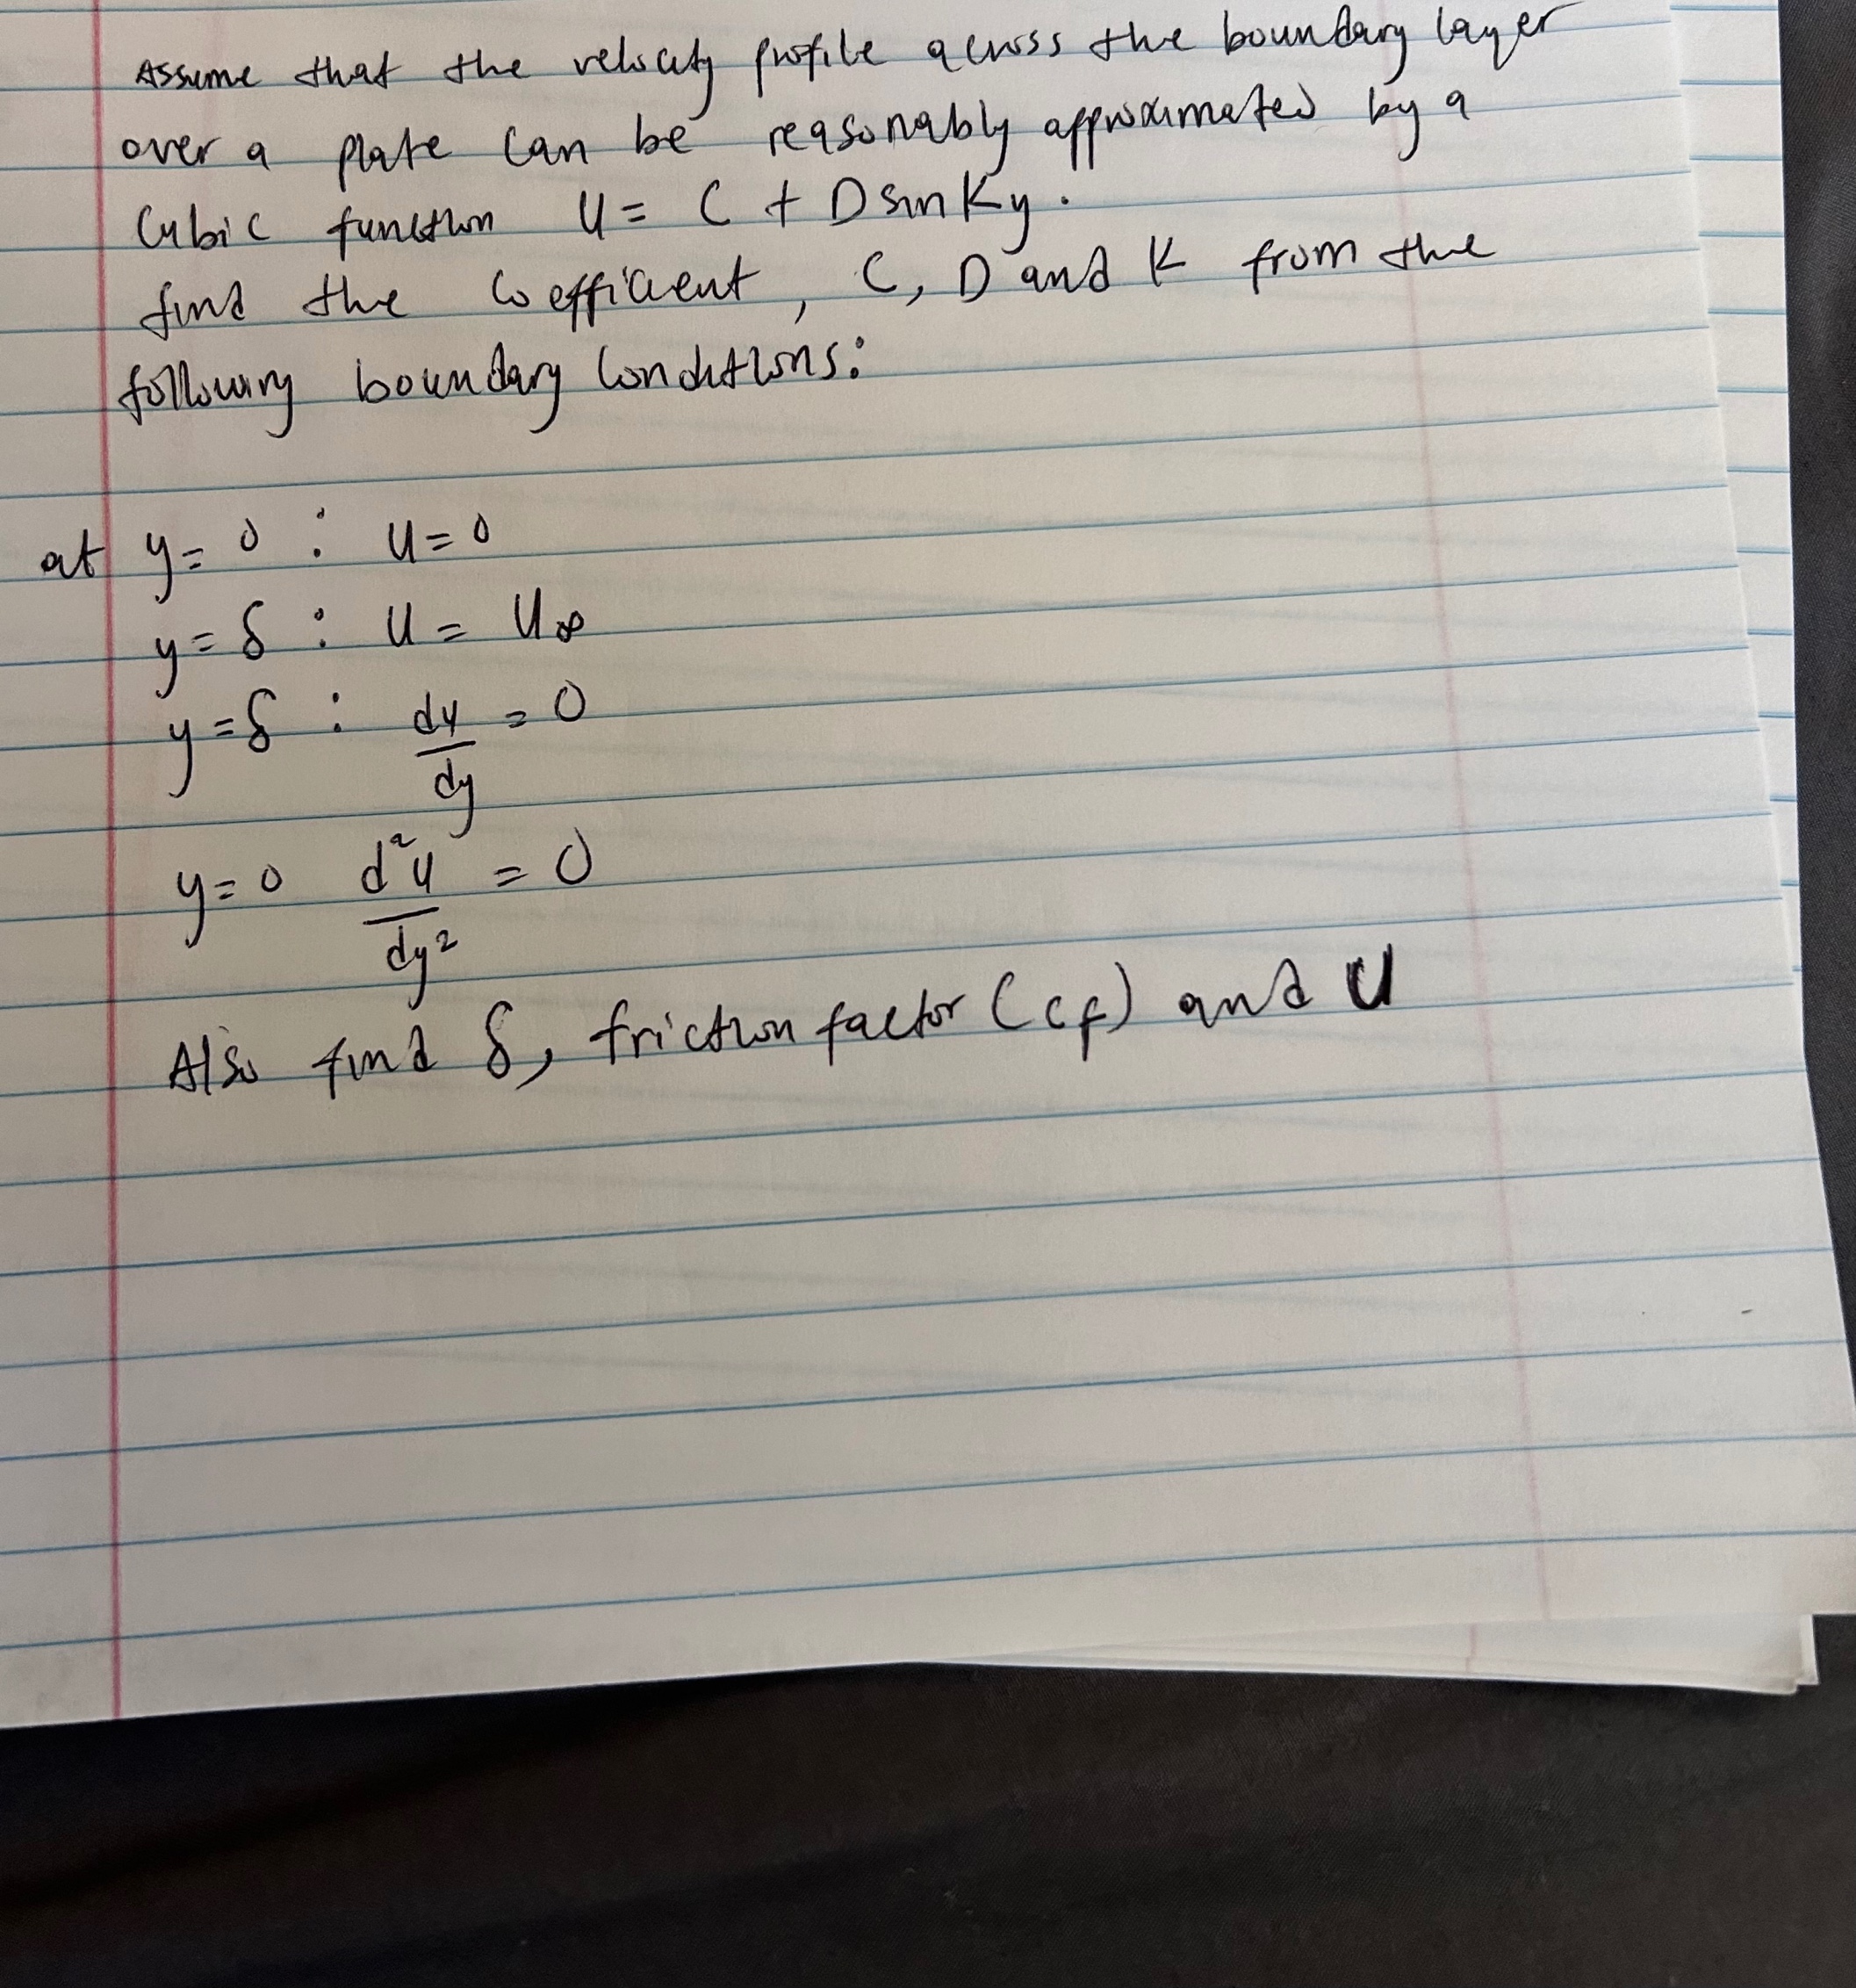 Assume that the velocity profile across the boundary layer
over a plate can be reasonably approximated by a
Cubic function U = C + D sin Ky.
find the coefficient, C, D and K from the
following boundary conditions:
at y = 0 : U = 0
y = δ : U = U∞
y = δ : du/dy = 0
y = 0 d²u/dy² = 0
Also find δ, friction factor (cf) and U